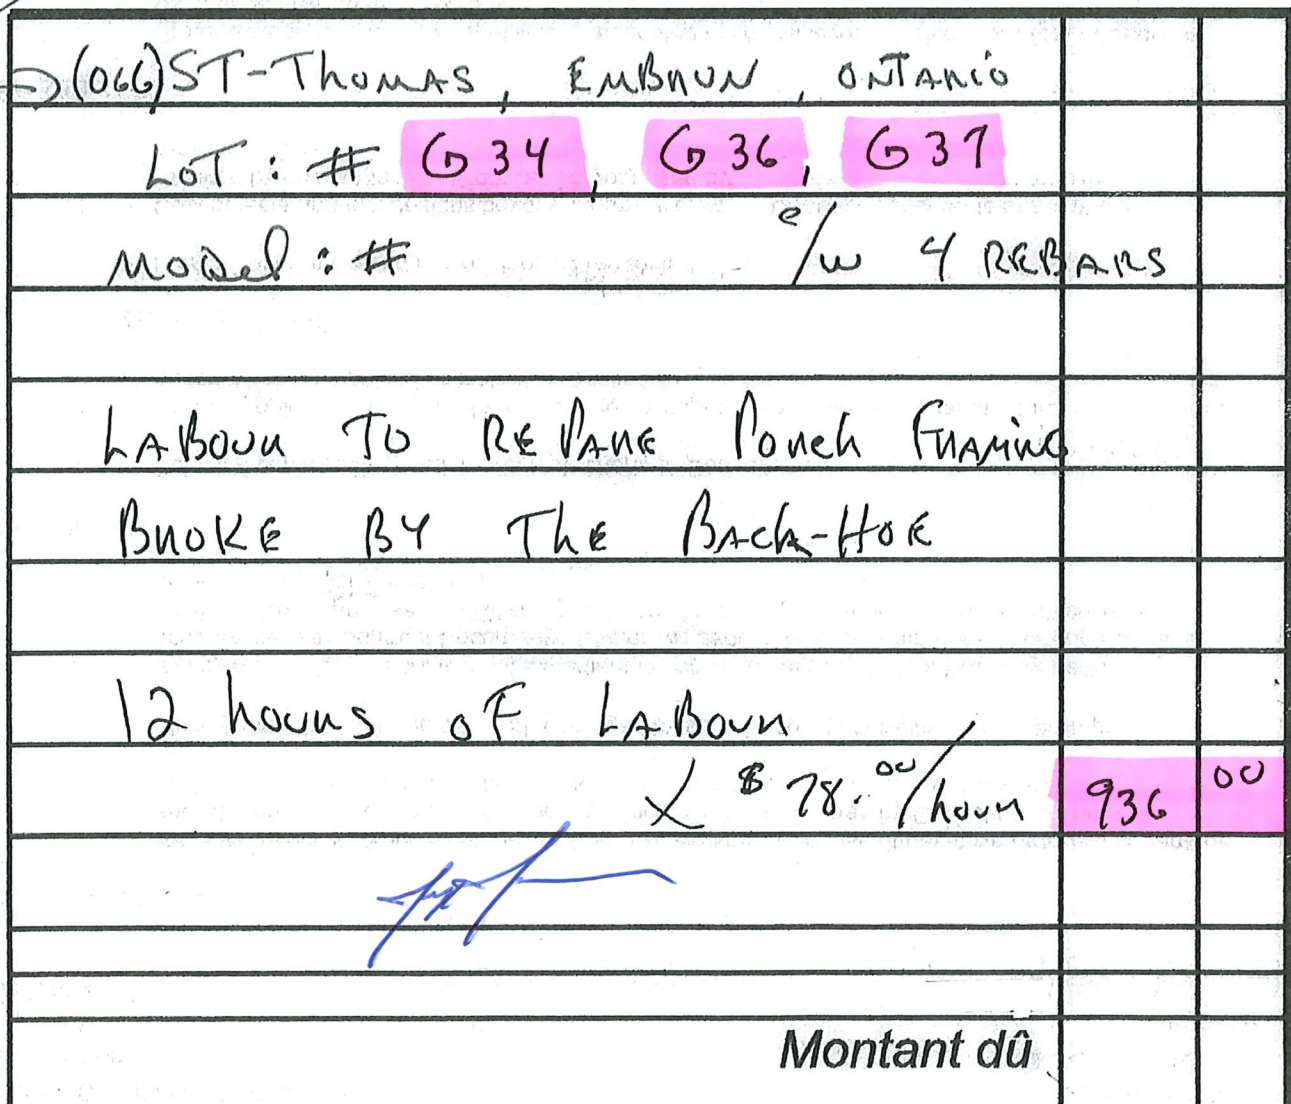 (066) ST-THOMAS, EMBRUN, ONTARIO
LOT: # G34, G36, G37
MODEL: # c/w 4 REBARS
LABOUR TO REPARE PORCH FRAMING
BROKE BY THE BACK-HOE
12 hours OF LABOUR
X $78.00/hour 936 00
Montant dû